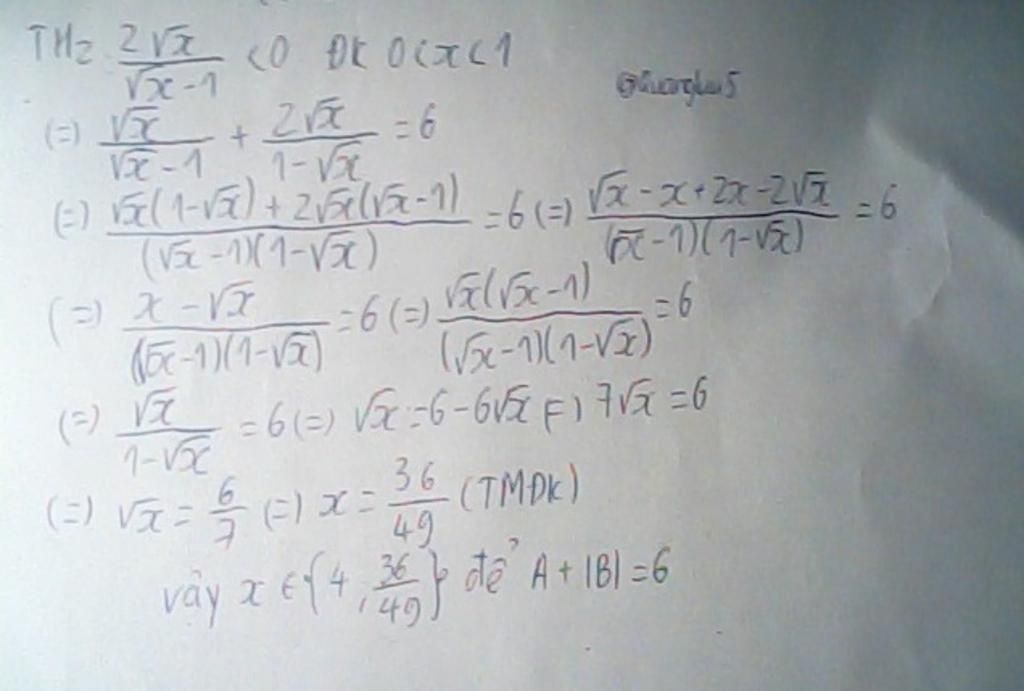 TH2 2√x/(√x-1) <0 ĐK 0<x<1
(=) √x/(√x-1) + 2√x/(1-√x) = 6
(=) (√x(1-√x)+2√x(√x-1))/((√x-1)(1-√x)) = 6 (=) (√x-x+2x-2√x)/((√x-1)(1-√x)) = 6
(=) (x-√x)/((√x-1)(1-√x)) = 6 (=) (√x(√x-1))/((√x-1)(1-√x)) = 6
(=) √x/(1-√x) = 6 (=) √x = 6-6√x (=) 7√x = 6
(=) √x = 6/7 (=) x = 36/49 (TMĐK)
vậy x ∈ {4, 36/49} để A + |B| = 6